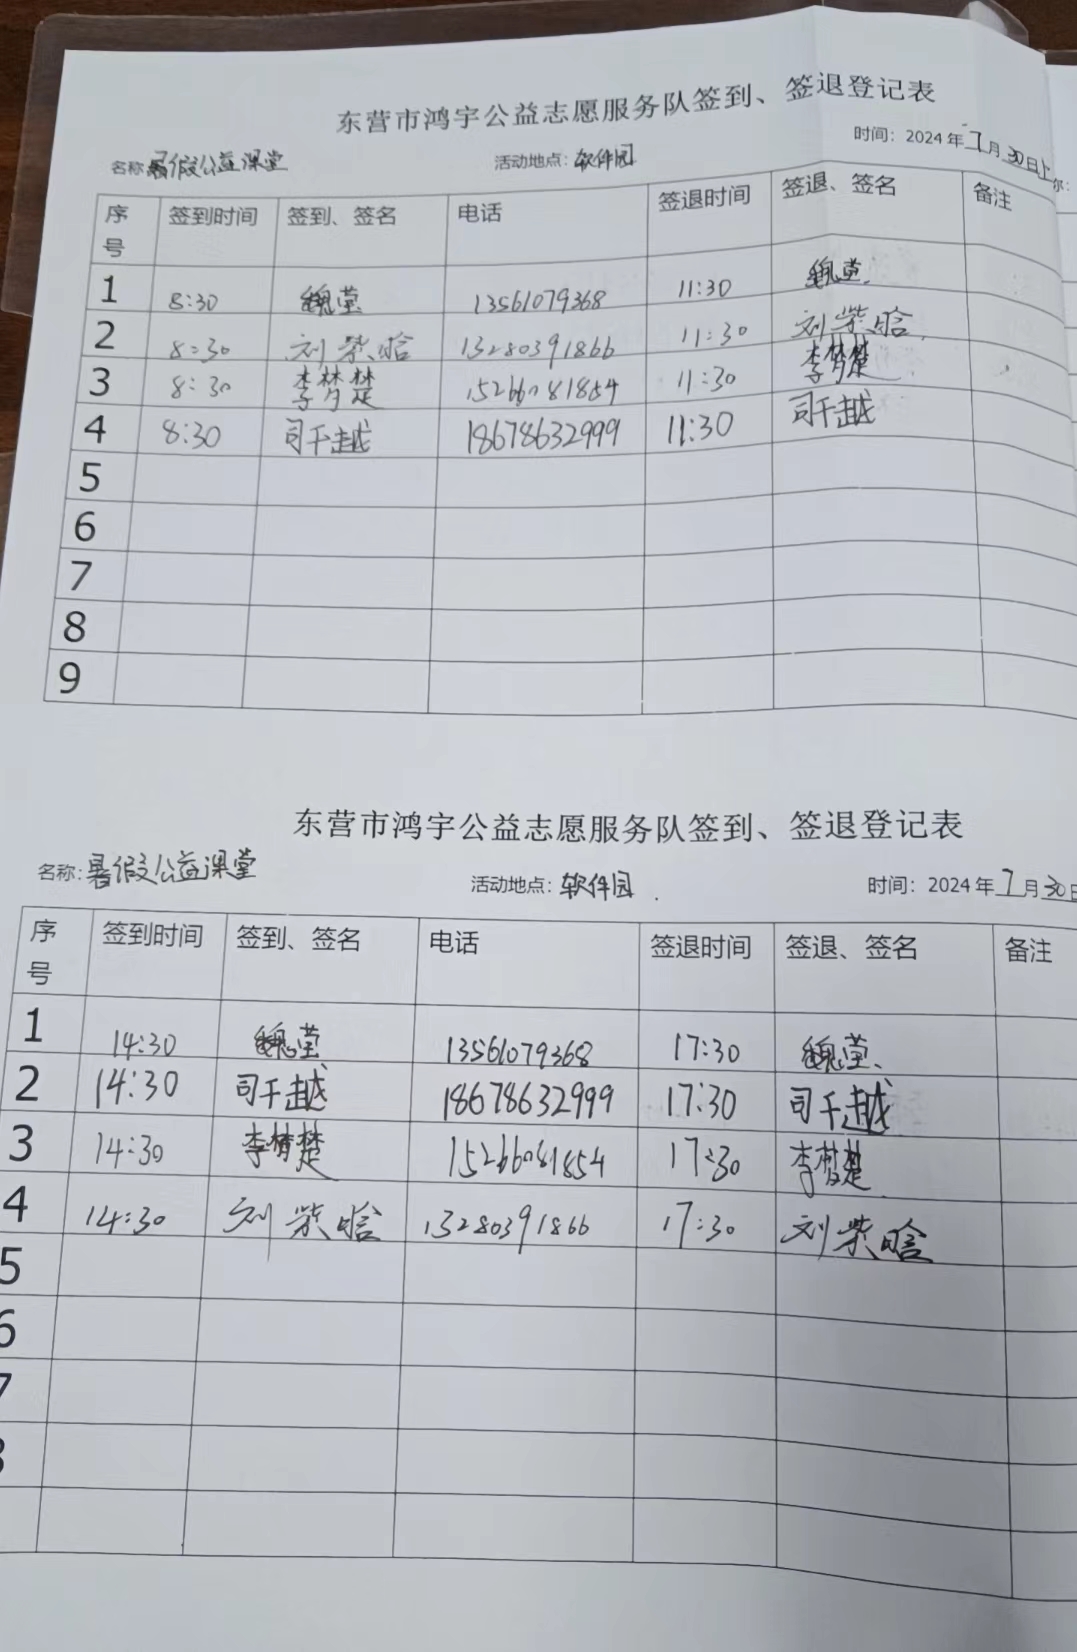 东营市鸿宇公益志愿服务队签到、签退登记表
名称 暑假公益课堂 活动地点：软件园 时间：2024年7月30日上
序号 签到时间 签到、签名 电话 签退时间 签退、签名 备注
1 8:30 魏莹 13561079368 11:30 魏莹
2 8:30 刘柴晗 13280391866 11:30 刘柴晗
3 8:30 李梦楚 15266081854 11:30 李梦楚
4 8:30 司千越 18678632999 11:30 司千越
5
6
7
8
9
东营市鸿宇公益志愿服务队签到、签退登记表
名称：暑假公益课堂 活动地点：软件园 时间：2024年7月30日
序号 签到时间 签到、签名 电话 签退时间 签退、签名 备注
1 14:30 魏莹 13561079368 17:30 魏莹
2 14:30 司千越 18678632999 17:30 司千越
3 14:30 李梦楚 15266081854 17:30 李梦楚
4 14:30 刘柴晗 13280391866 17:30 刘柴晗
5
6
7